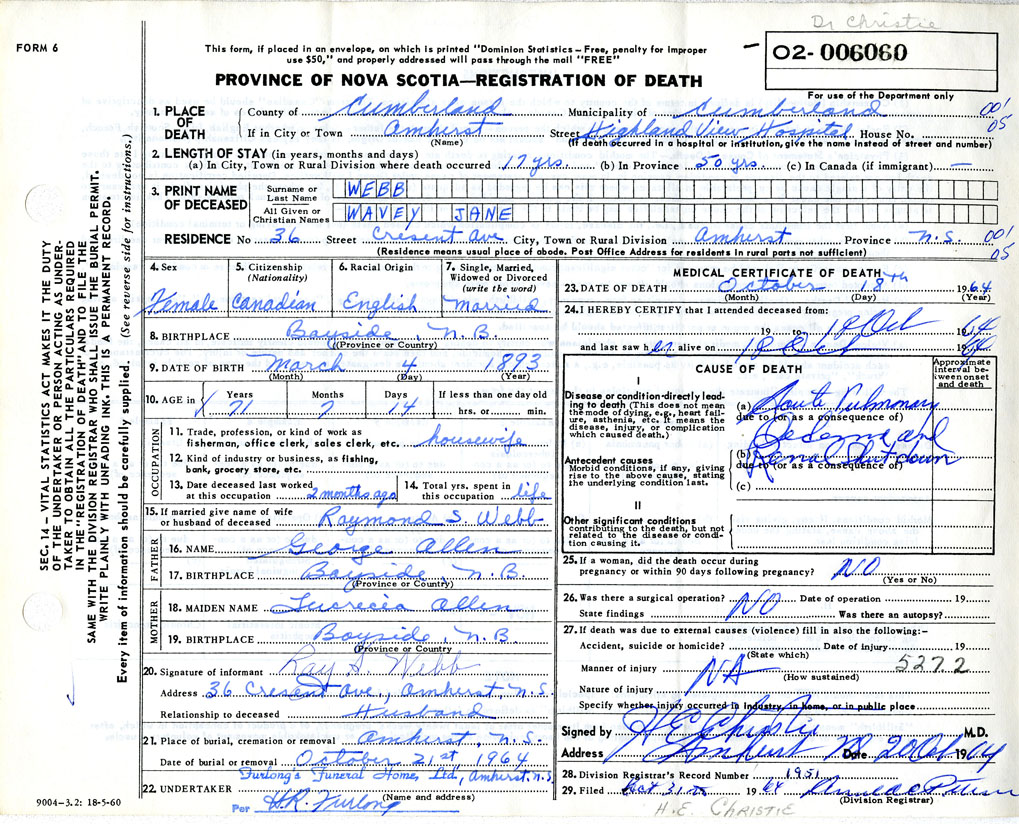 Dr Christie
FORM 6
This form, if placed in an envelope, on which is printed "Dominion Statistics – Free, penalty for improper
use $50," and properly addressed will pass through the mail "FREE"
02- 006060
PROVINCE OF NOVA SCOTIA—REGISTRATION OF DEATH
For use of the Department only
1. PLACE OF DEATH
County of Cumberland Municipality of Cumberland 001
05
If in City or Town Amherst Street Highland View Hospital House No.
(Name) (If death occurred in a hospital or institution, give the name instead of street and number)
2. LENGTH OF STAY (in years, months and days)
(a) In City, Town or Rural Division where death occurred 17 yrs. (b) In Province 50 yrs. (c) In Canada (if immigrant) —
3. PRINT NAME OF DECEASED
Surname or Last Name WEBB
All Given or Christian Names WAVEY JANE
RESIDENCE No 36 Street Cresent Ave City, Town or Rural Division Amherst Province N.S. 001
05
(Residence means usual place of abode. Post Office Address for residents in rural parts not sufficient)
SEC. 14 – VITAL STATISTICS ACT MAKES IT THE DUTY
OF THE UNDERTAKER OR PERSON ACTING AS UNDER-
TAKER TO OBTAIN ALL THE PARTICULARS REQUIRED
IN THE "REGISTRATION OF DEATH" AND TO FILE THE
SAME WITH THE DIVISION REGISTRAR WHO SHALL ISSUE THE BURIAL PERMIT.
WRITE PLAINLY WITH UNFADING INK. THIS IS A PERMANENT RECORD.
Every item of information should be carefully supplied. (See reverse side for instructions.)
4. Sex
Female
5. Citizenship
(Nationality)
Canadian
6. Racial Origin
English
7. Single, Married,
Widowed or Divorced
(write the word)
Married
8. BIRTHPLACE Bayside N.B.
(Province or Country)
9. DATE OF BIRTH March 4 1893
(Month) (Day) (Year)
10. AGE in Years Months Days If less than one day old
71 7 14 hrs. or min.
OCCUPATION
11. Trade, profession, or kind of work as
fisherman, office clerk, sales clerk, etc. housewife
12. Kind of industry or business, as fishing,
bank, grocery store, etc.
13. Date deceased last worked
at this occupation 2 months ago
14. Total yrs. spent in
this occupation life
15. If married give name of wife
or husband of deceased Raymond S. Webb
FATHER
16. NAME George Allen
17. BIRTHPLACE Bayside, N.B.
(Province or Country)
MOTHER
18. MAIDEN NAME Lucrecia Allen
19. BIRTHPLACE Bayside, N.B
(Province or Country
20. Signature of informant Ray S. Webb
Address 36 Cresent Ave., Amherst, N.S.
Relationship to deceased Husband
21. Place of burial, cremation or removal Amherst, N.S.
Date of burial or removal October 21st 1964
Furlong's Funeral Home, Ltd, Amherst, N.S.
22. UNDERTAKER
(Name and address)
Per H.R. Furlong
9004–3.2: 18-5-60
MEDICAL CERTIFICATE OF DEATH
23. DATE OF DEATH October 18th 1964
(Month) (Day) (Year)
24. I HEREBY CERTIFY that I attended deceased from:
19 to 18 Oct 1964
and last saw her alive on 18 Oct 1964
CAUSE OF DEATH
Approximate
interval be-
tween onset
and death
I
Disease or condition directly lead-
ing to death (This does not mean
the mode of dying, e.g., heart fail-
ure, asthenia, etc. It means the
disease, injury, or complication
which caused death.)
(a) Acute Pulmonary
due to (or as a consequence of)
Oedema and
Antecedent causes
Morbid conditions, if any, giving
rise to the above cause, stating
the underlying condition last.
(b) Renal Shutdown
due to (or as a consequence of)
(c)
II
Other significant conditions
contributing to the death, but not
related to the disease or condi-
tion causing it.
25. If a woman, did the death occur during
pregnancy or within 90 days following pregnancy? NO
(Yes or No)
26. Was there a surgical operation? NO Date of operation 19
State findings Was there an autopsy?
27. If death was due to external causes (violence) fill in also the following:–
Accident, suicide or homicide? Date of injury 19
(State which)
5272
Manner of injury NA
(How sustained)
Nature of injury
Specify whether injury occurred in industry, in home, or in public place
Signed by H E Christie M.D.
Address Amherst NS Date 20 Oct 1964
28. Division Registrar's Record Number 1951
29. Filed Oct 31st 1964
(Division Registrar)
H.E. CHRISTIE